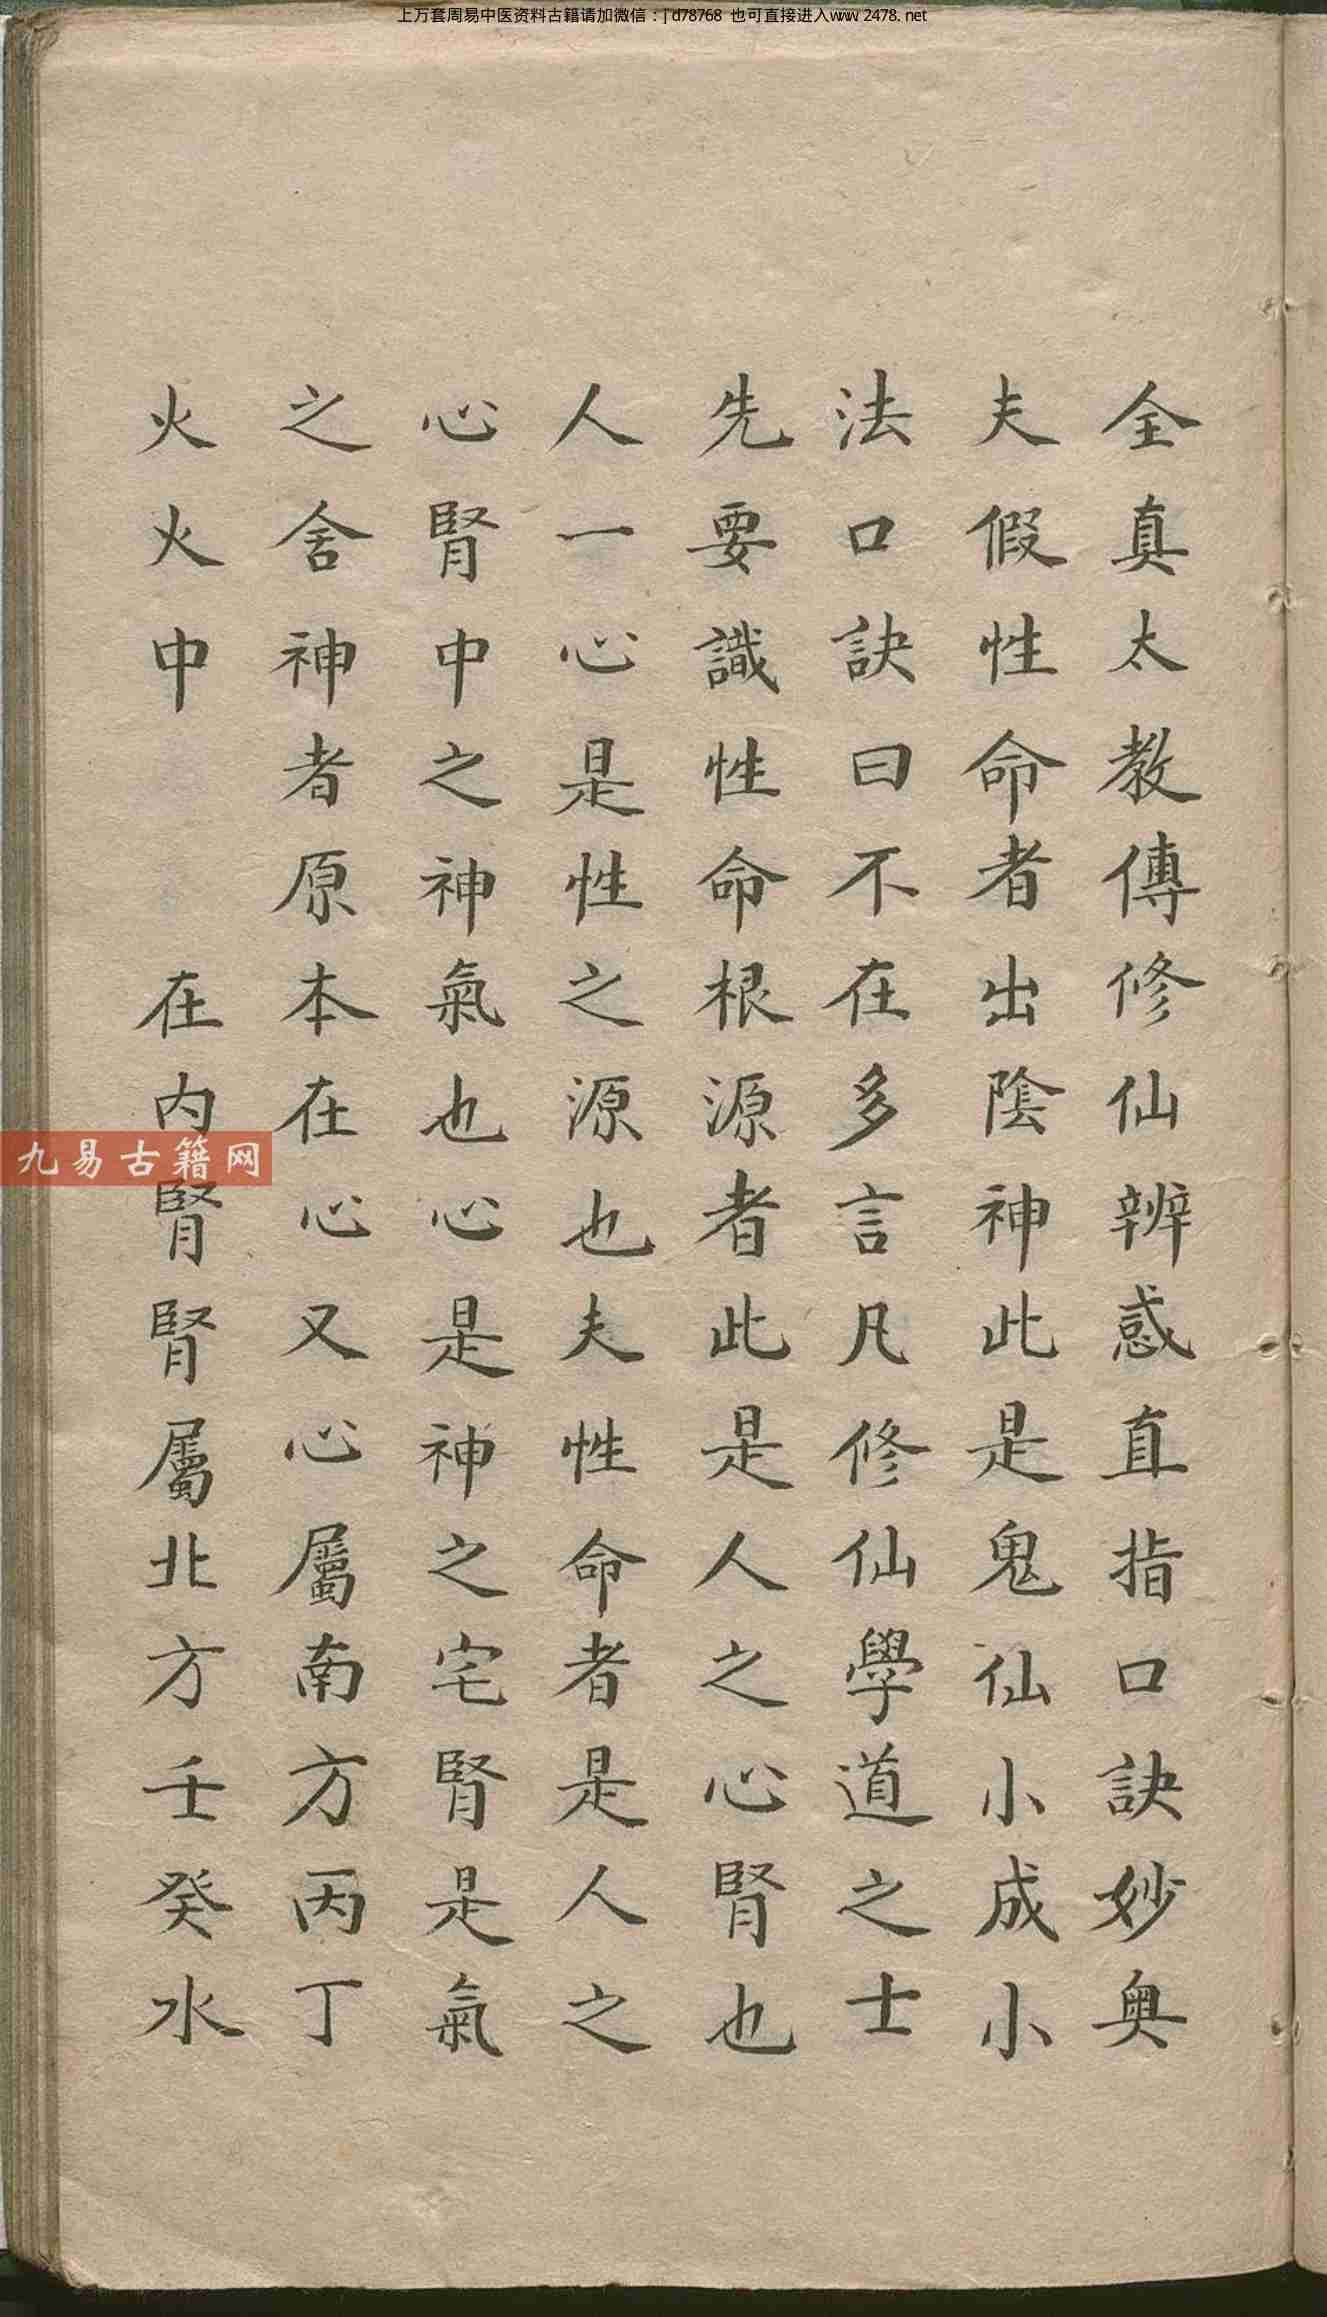 上万套周易中医资料古籍请加微信：jd78768 也可直接进入www 2478. net
全真太教傳修仙辨惑直指口訣妙奥
夫假性命者出陰神此是鬼仙小成小
法口訣曰不在多言凡修仙學道之士
先要識性命根源者此是人之心腎也
人一心是性之源也夫性命者是人之
心腎中之神氣也心是神之宅腎是氣
之舍神者原本在心又心屬南方丙丁
火火中　在内腎腎屬北方壬癸水
九易古籍网